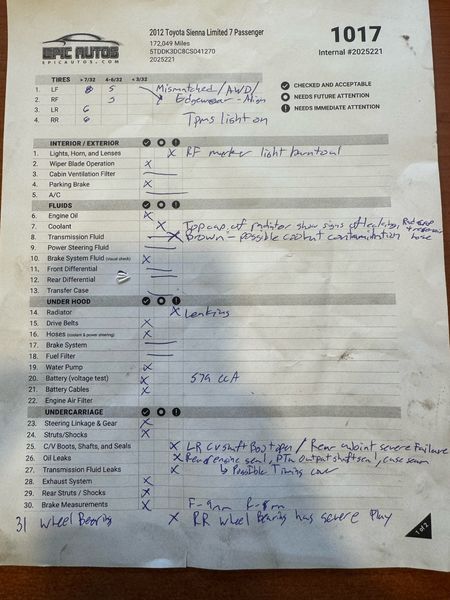 EPIC AUTOS
EPICAUTOS.COM
2012 Toyota Sienna Limited 7 Passenger
172,049 Miles
5TDDK3DC8CS041270
2025221
1017
Internal #2025221
TIRES > 7/32 4-6/32 < 3/32
1. LF 8 5 Mismatched/AWD/
2. RF Edgewear - Align
3. LR 6
4. RR 6 TPMS light on
CHECKED AND ACCEPTABLE
NEEDS FUTURE ATTENTION
NEEDS IMMEDIATE ATTENTION
INTERIOR / EXTERIOR
1. Lights, Horn, and Lenses X RF marker light burnt out
2. Wiper Blade Operation X
3. Cabin Ventilation Filter —
4. Parking Brake X
5. A/C —
FLUIDS
6. Engine Oil X
7. Coolant X Top cap of radiator show signs of leaking, Rad cap
8. Transmission Fluid X Brown - possible coolant contamination hose
9. Power Steering Fluid —
10. Brake System Fluid (visual check) X
11. Front Differential —
12. Rear Differential —
13. Transfer Case —
UNDER HOOD
14. Radiator X Leaking
15. Drive Belts X
16. Hoses (coolant & power steering) X
17. Brake System —
18. Fuel Filter —
19. Water Pump X
20. Battery (voltage test) X 579 CCA
21. Battery Cables X
22. Engine Air Filter X
UNDERCARRIAGE
23. Steering Linkage & Gear X
24. Struts/Shocks X
25. C/V Boots, Shafts, and Seals X LR CV shaft Boot open / Rear ujoint severe failure
26. Oil Leaks X Rear engine seal, PTU output shaft seal, case seam
27. Transmission Fluid Leaks X ↳ Possible Timing cover
28. Exhaust System X
29. Rear Struts / Shocks X
30. Brake Measurements X F-9mm R-8mm
31 Wheel Bearing X RR wheel Bearing has severe play
1 of 2